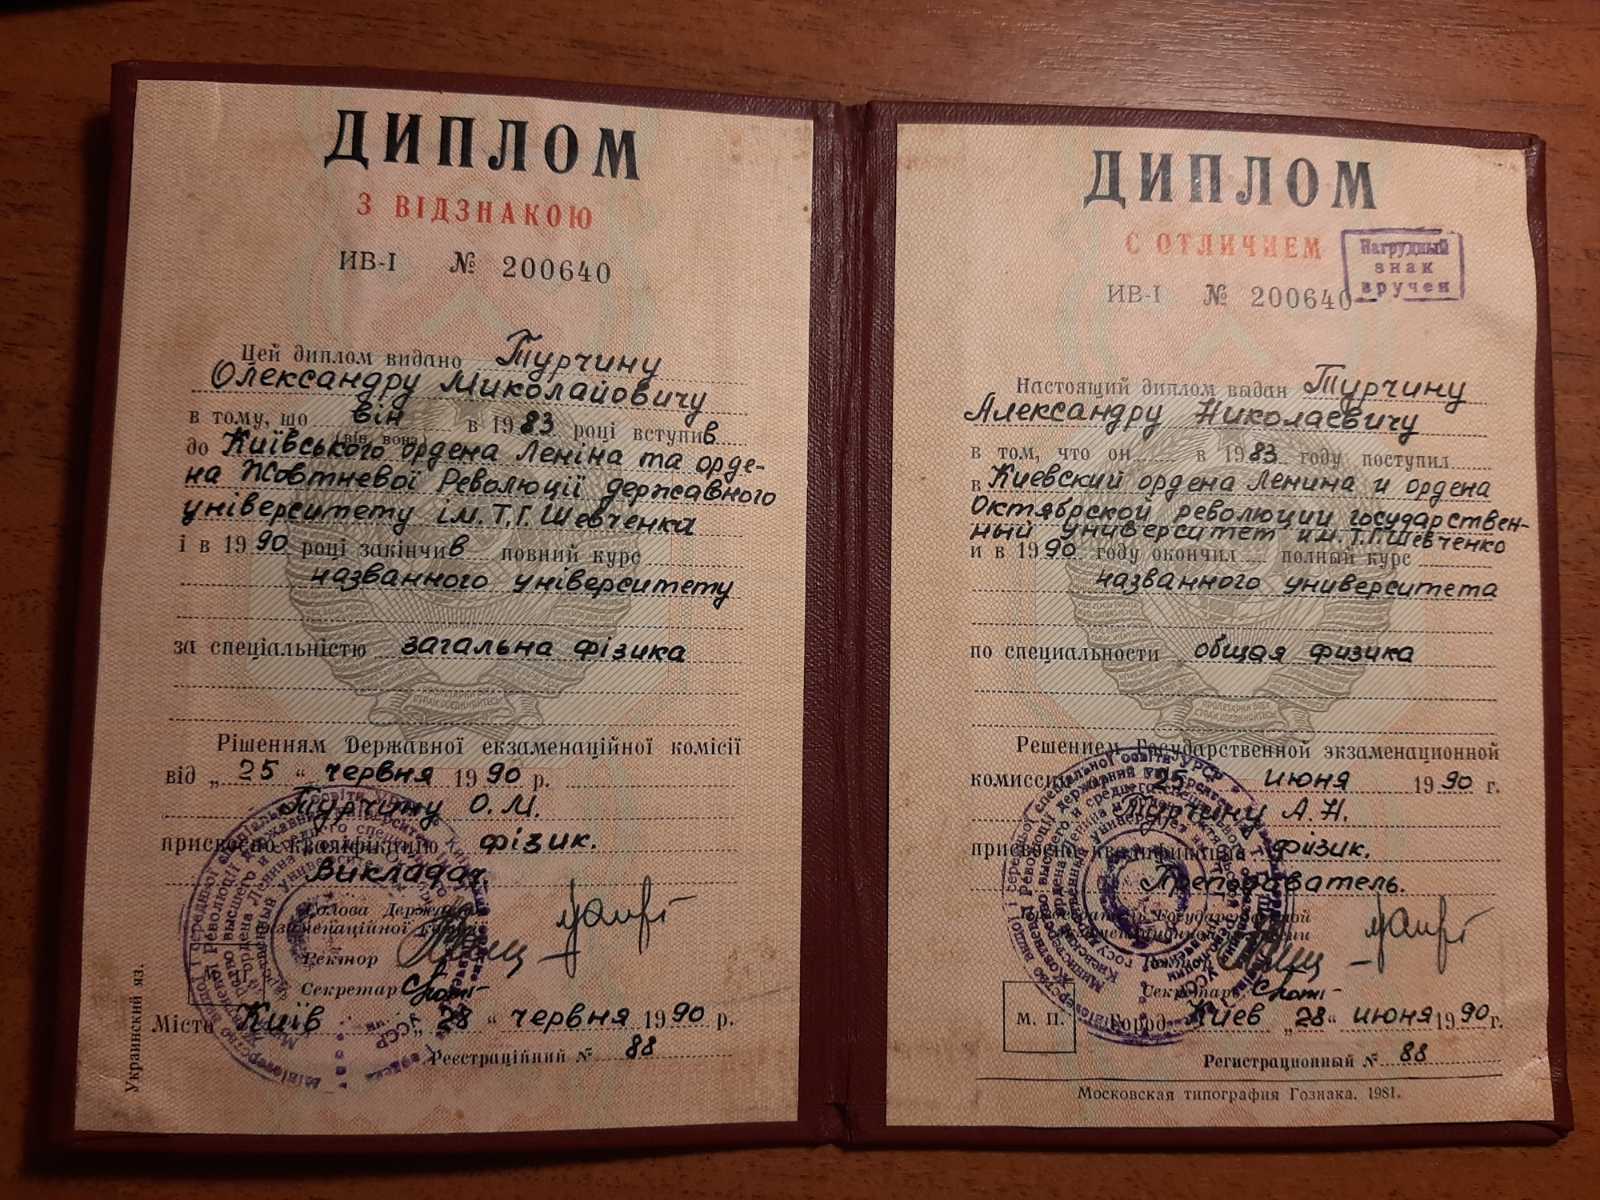 ДИПЛОМ
З ВІДЗНАКОЮ
ИВ-I № 200640
Цей диплом видано Турчину
Олександру Миколайовичу
в тому, що він в 1983 році вступив
(він, вона)
до Київського ордена Леніна та орде-
на Жовтневої Революції державного
університету ім. Т.Г. Шевченка
і в 1990 році закінчив повний курс
названного університету
за спеціальністю загальна фізика
Рішенням Державної екзаменаційної комісії
від „25“ червня 1990 р.
Турчину О.М.
присвоєно кваліфікацію фізик.
Викладач
Голова Державної
екзаменаційної комісії
Ректор
Секретар
Місто Київ „28“ червня 1990 р.
Реєстраційний № 88
Украинский яз.
ДИПЛОМ
С ОТЛИЧИЕМ
Нагрудный
знак
вручен
ИВ-I № 200640
Настоящий диплом выдан Турчину
Александру Николаевичу
в том, что он в 1983 году поступил
в Киевский ордена Ленина и ордена
Октябрской революции государствен-
ный университет им. Т.Г. Шевченко
и в 1990 году окончил полный курс
названного университета
по специальности общая физика
Решением Государственной экзаменационной
комиссии 25 июня 1990 г.
Турчину А.Н.
присвоена квалификация физик.
Преподаватель.
Председатель Государственной
экзаменационной комиссии
Секретарь
М. П.
Город Киев „28“ июня 1990 г.
Регистрационный № 88
Московская типография Гознака. 1981.